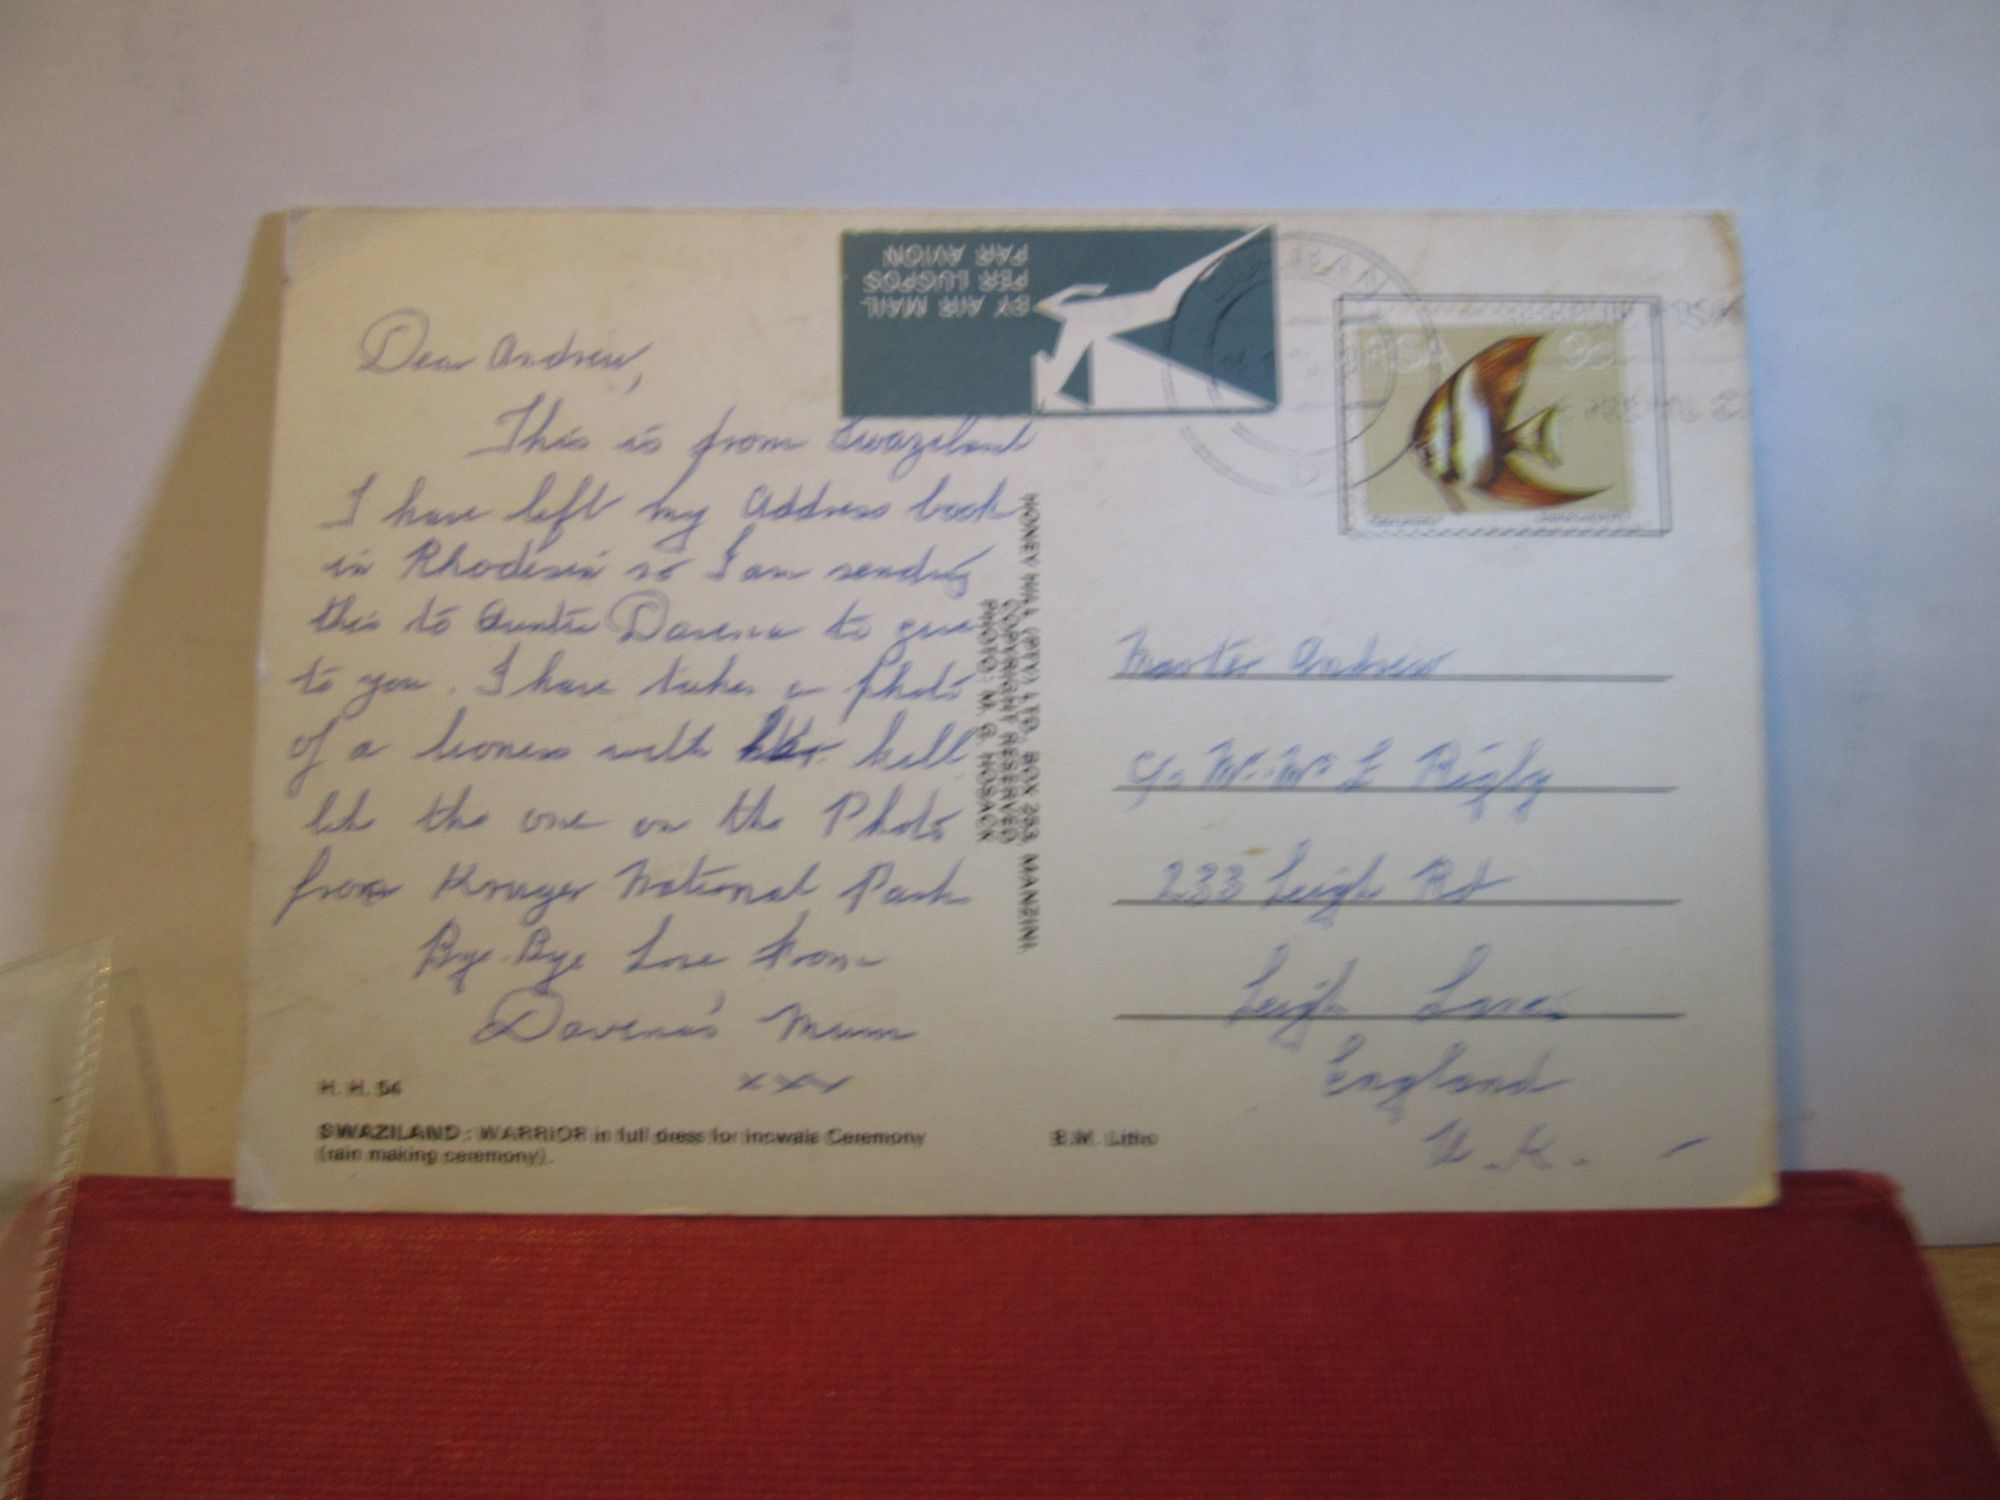 Dear Andrew,
This is from Swaziland
I have left my Address book
in Rhodesia so I am sending
this to Auntie Davena to give
to you. I have taken a photo
of a lioness with her kill
like the one on the Photo
from Kruger National Park
Bye-Bye Love From
Davena's Mum
xxx
H. H. 54
SWAZILAND : WARRIOR in full dress for Incwala Ceremony
(rain making ceremony).
BY AIR MAIL
PER LUGPOS
PAR AVION
HONEY HILL (PTY) LTD. BOX 293, MANZINI.
COPYRIGHT RESERVED
PHOTO: M. G. HOSACK
RSA 9c
Master Andrew
c/o Mr. Mrs Rigby
233 Leigh Rd
Leigh Lancs
England
U.K.
Litho